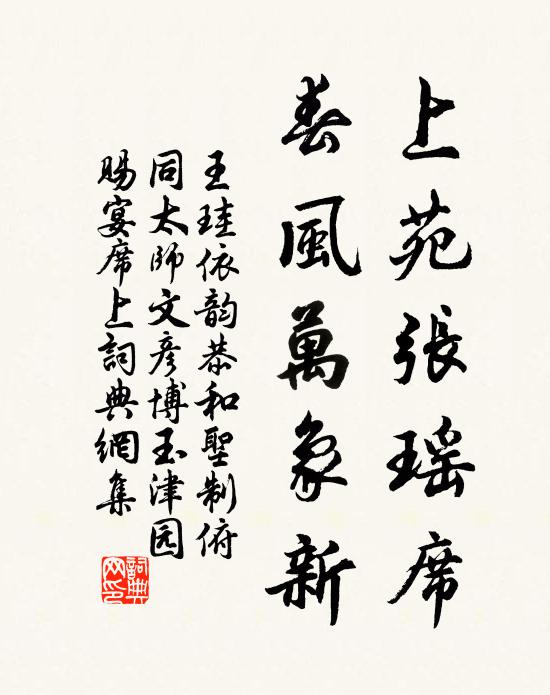 上苑張瑶席
春風萬象新
王珪依韵恭和聖制俯
同太師文彦博玉津园
賜宴席上詞典網集
詞典网印